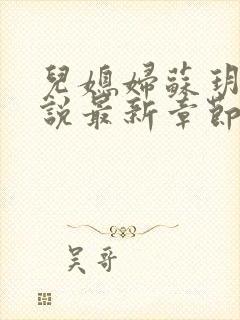 兒媳婦蘇玥
說最新章節
吴哥